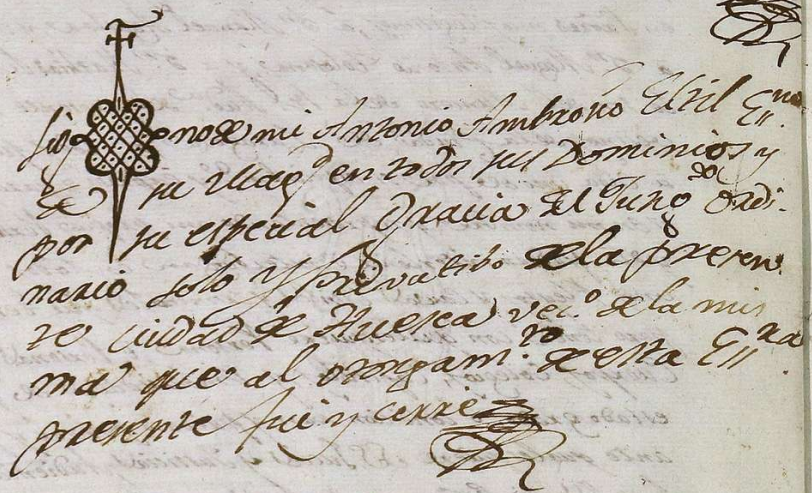 Sig no de mi Antonio Ambrosio Estil Essno
de su Magd en todos sus Dominios y
por su especial Gracia del Juzgdo ordi-
nario solo y privativo de la presen
te Ciudad de Huesca veco de la mis
ma que al otorgamto de esta Essra
presente fui y cerre